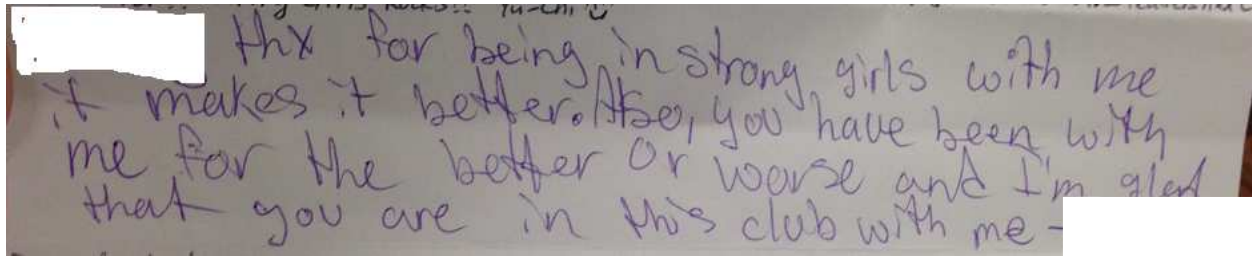 thx for being in strong girls with me
it makes it better. Also, you have been with
me for the better or worse and I'm glad
that you are in this club with me -